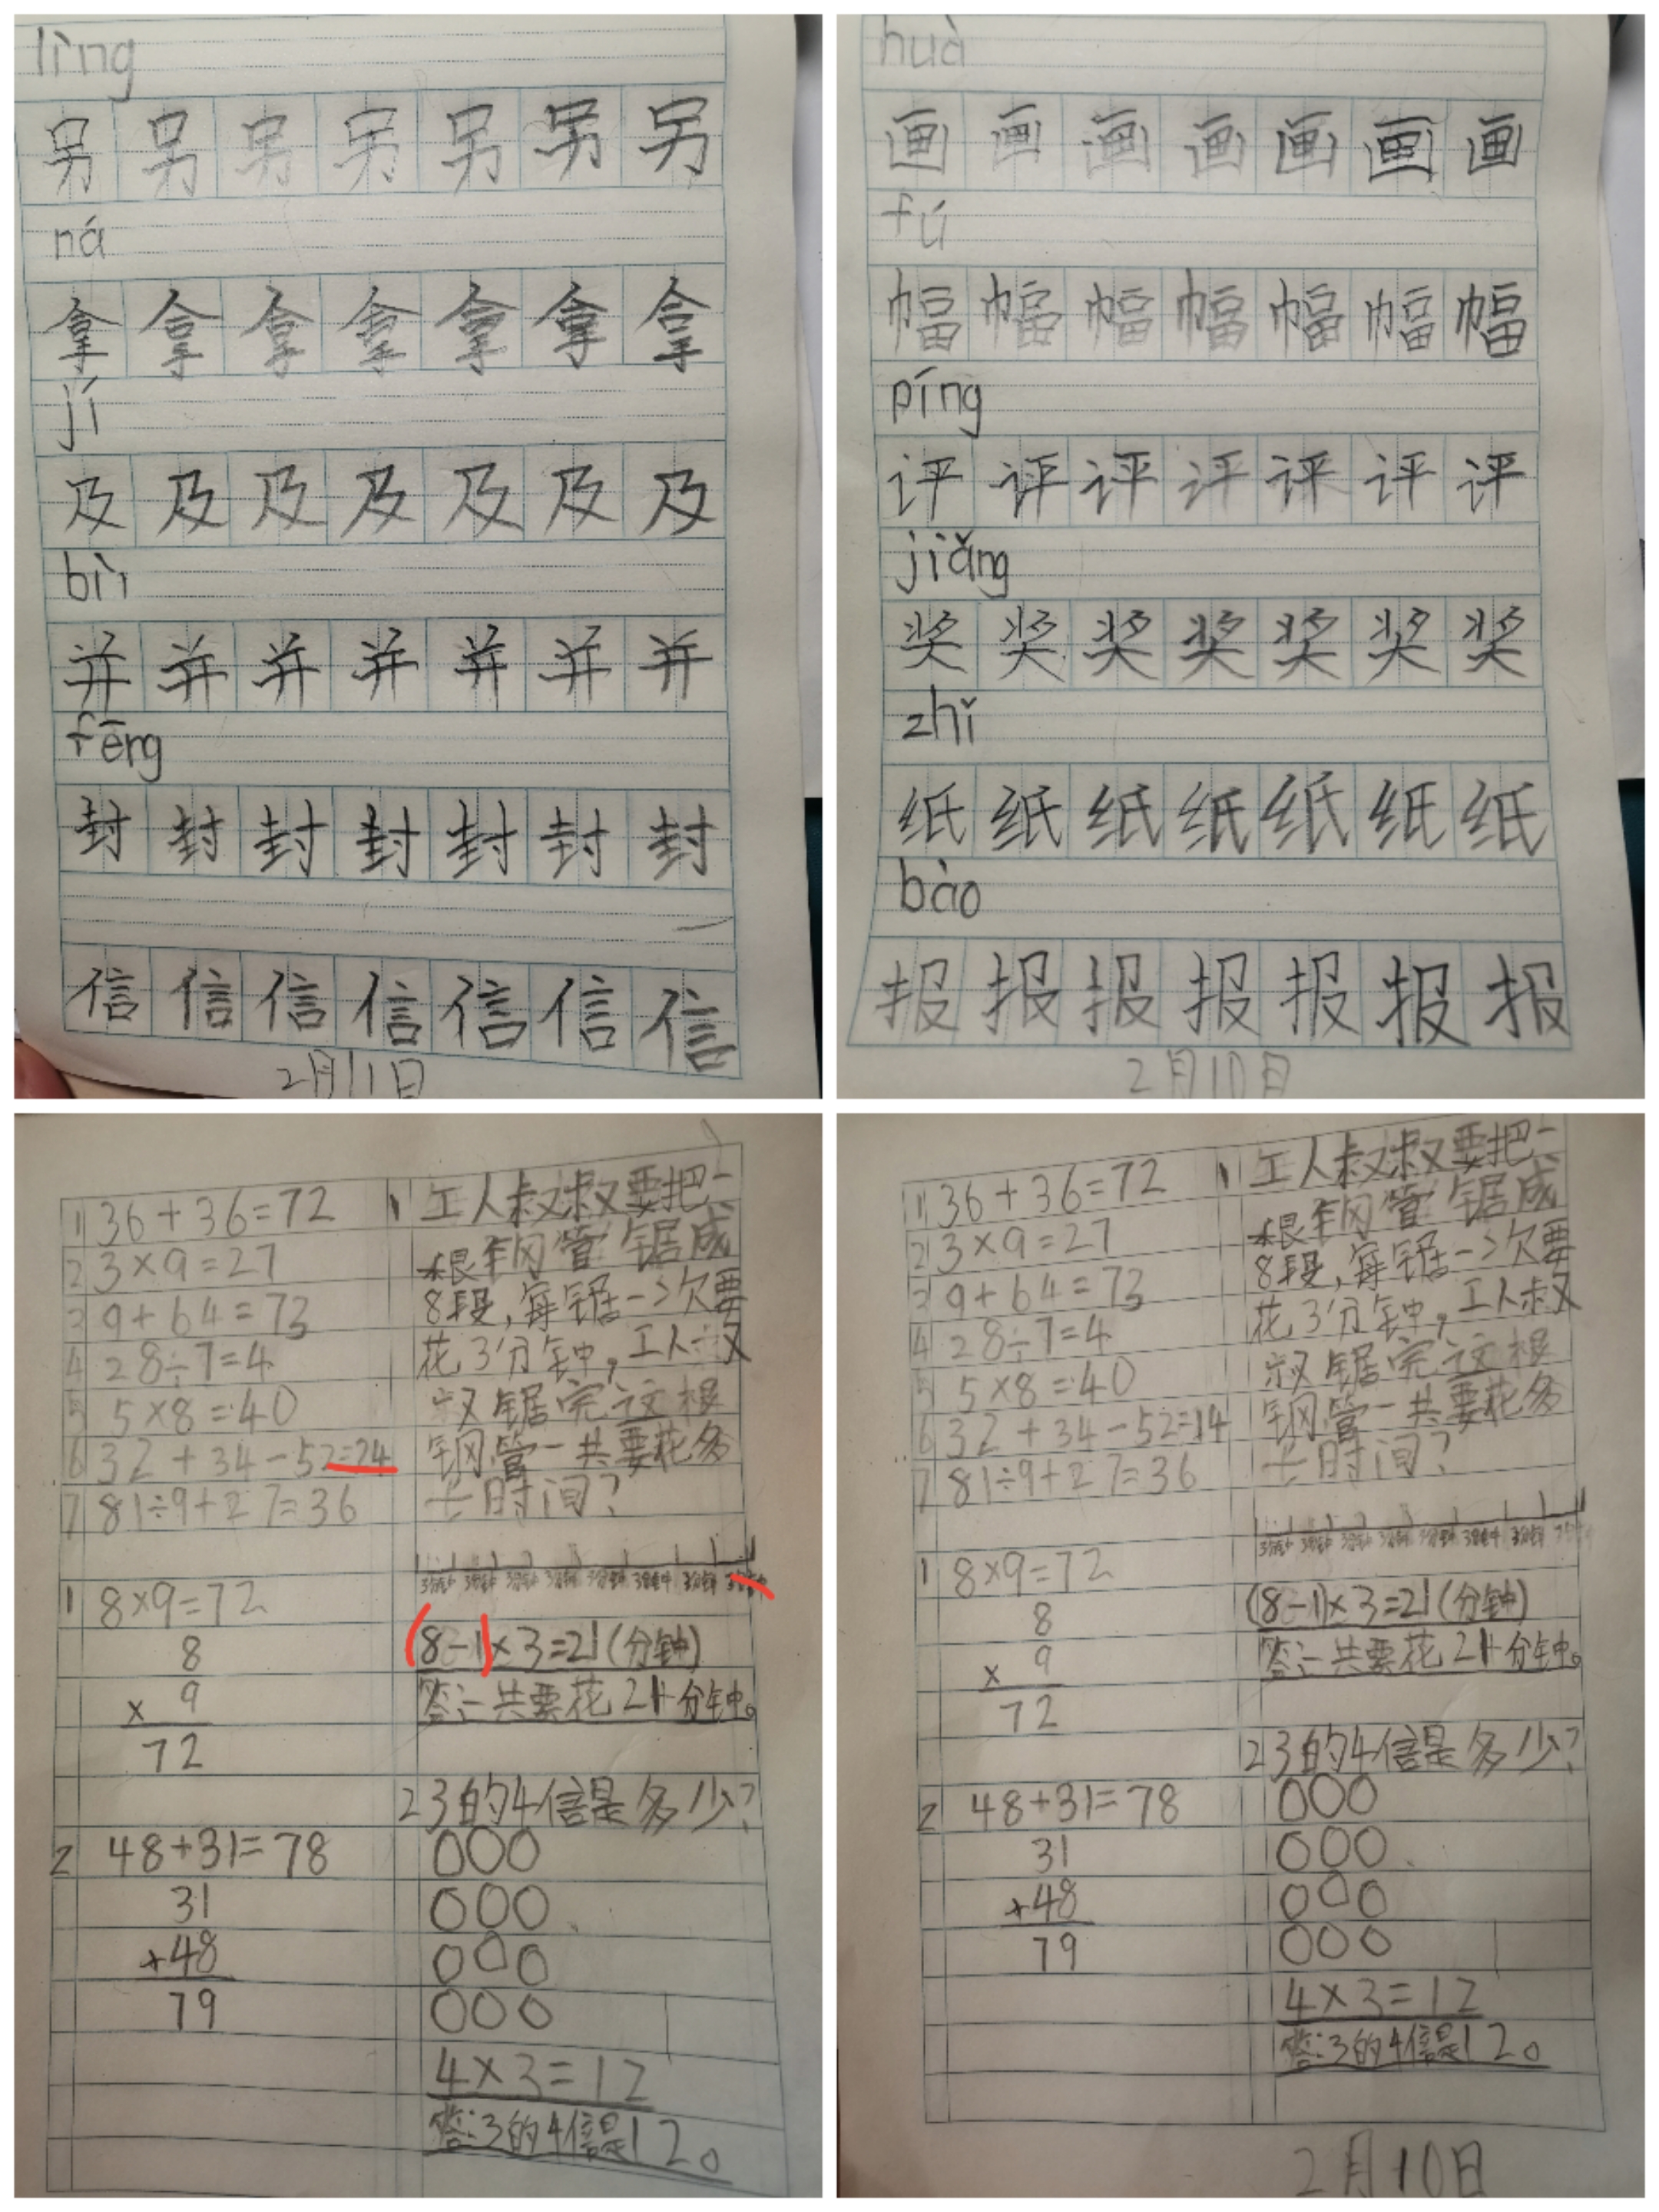 lìng
另 另 另 另 另 另 另
ná
拿 拿 拿 拿 拿 拿 拿
jí
及 及 及 及 及 及 及
bìn
并 并 并 并 并 并 并
fēng
封 封 封 封 封 封 封
信 信 信 信 信 信 信
2月11日
huà
画 画 画 画 画 画 画
fú
幅 幅 幅 幅 幅 幅 幅
píng
评 评 评 评 评 评 评
jiǎng
奖 奖 奖 奖 奖 奖 奖
zhǐ
纸 纸 纸 纸 纸 纸 纸
bào
报 报 报 报 报 报 报
2月10日
1 36+36=72
2 3×9=27
3 9+64=73
4 28÷7=4
5 5×8=40
6 32+34-52=24
7 81÷9+27=36
1 8×9=72
8
× 9
72
2 48+31=78
31
+48
79
1 工人叔叔要把一
根钢管锯成
8段,每锯一次要
花3分钟,工人叔
叔锯完这根
钢管一共要花多
少时间?
3分钟 3分钟 3分钟 3分钟 3分钟 3分钟 3分钟 3分钟
(8-1)×3=21(分钟)
答:一共要花21分钟。
2 3的4倍是多少?
000
000
000
000
4×3=12
答:3的4倍是12。
1 36+36=72
2 3×9=27
3 9+64=73
4 28÷7=4
5 5×8=40
6 32+34-52=14
7 81÷9+27=36
1 8×9=72
8
× 9
72
2 48+31=78
31
+48
79
1 工人叔叔要把一
根钢管锯成
8段,每锯一次要
花3分钟,工人叔
叔锯完这根
钢管一共要花多
少时间?
3分钟 3分钟 3分钟 3分钟 3分钟 3分钟 3分钟
(8-1)×3=21(分钟)
答:一共要花21分钟。
2 3的4倍是多少?
000
000
000
000
4×3=12
答:3的4倍是12。
2月10日